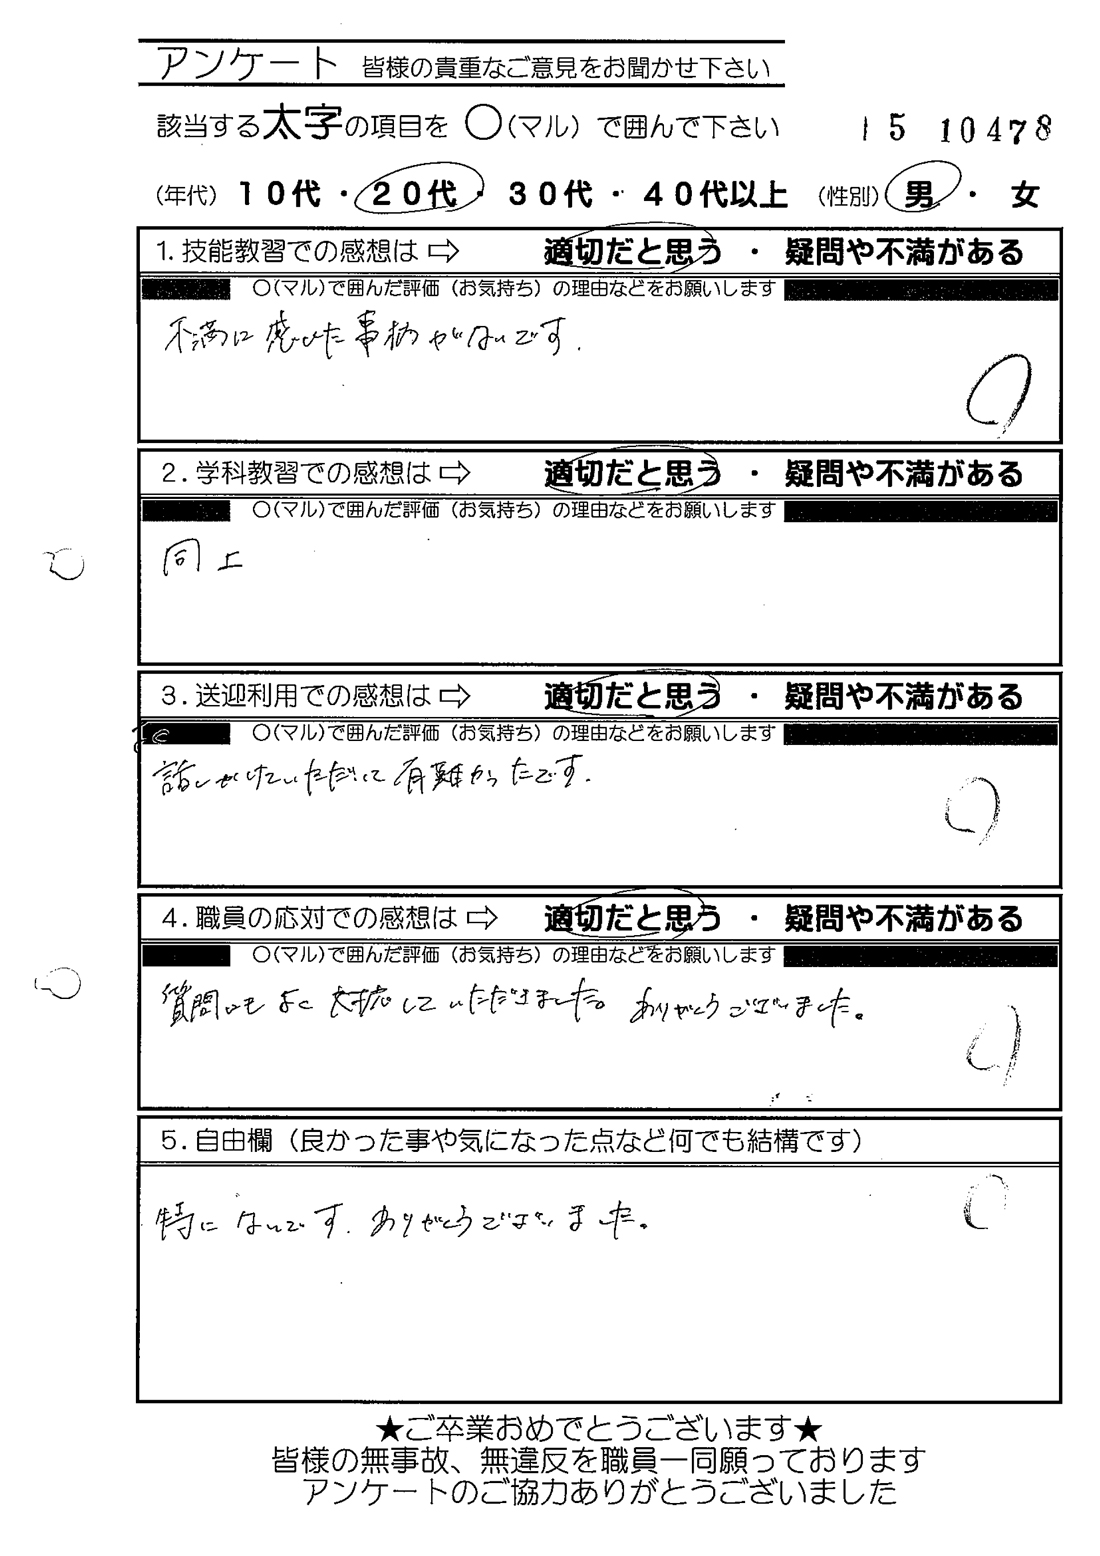 アンケート 皆様の貴重なご意見をお聞かせ下さい
該当する太字の項目を ○(マル) で囲んで下さい 15 10478
(年代) 10代・20代・30代・40代以上 (性別) 男・女
1.技能教習での感想は⇨ 適切だと思う ・ 疑問や不満がある
○(マル)で囲んだ評価(お気持ち)の理由などをお願いします
不満に感じた事柄がないです.
2.学科教習での感想は⇨ 適切だと思う ・ 疑問や不満がある
○(マル)で囲んだ評価(お気持ち)の理由などをお願いします
同上
3.送迎利用での感想は⇨ 適切だと思う ・ 疑問や不満がある
○(マル)で囲んだ評価(お気持ち)の理由などをお願いします
話しかけていただいて有難かったです.
4.職員の応対での感想は⇨ 適切だと思う ・ 疑問や不満がある
○(マル)で囲んだ評価(お気持ち)の理由などをお願いします
質問にもよく対応していただきました。ありがとうございました。
5.自由欄(良かった事や気になった点など何でも結構です)
特にないです.ありがとうございました。
★ご卒業おめでとうございます★
皆様の無事故、無違反を職員一同願っております
アンケートのご協力ありがとうございました